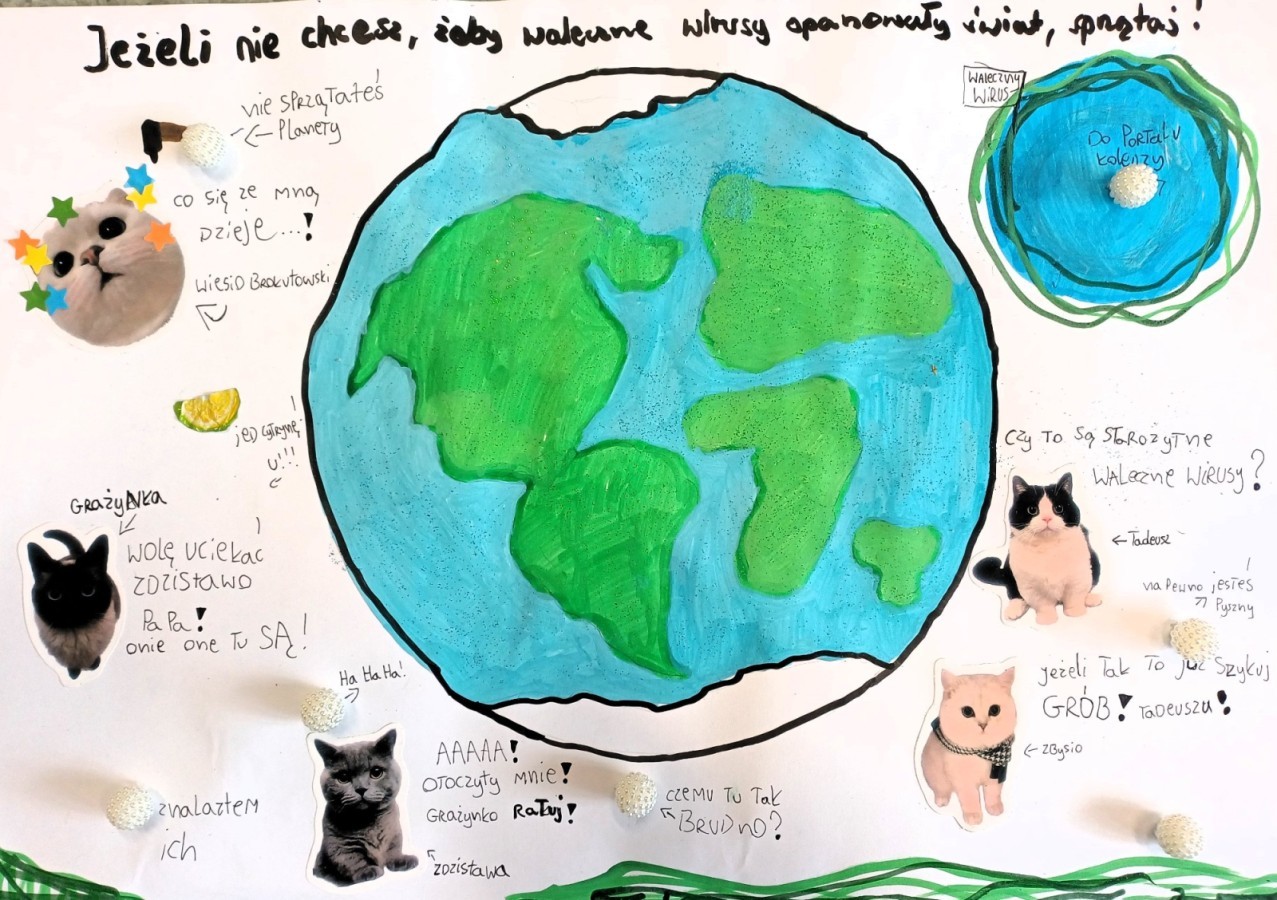 Jeżeli nie chcesz, żeby waleczne wirusy opanowały świat, sprzątaj!
nie SPRZĄTAłeś!
Planety
co się ze mną
Dzieje...!
wiesio Brokutowski
jeD cytrynę!
U!!!
GRAżyNka
wolę uciekać!
ZDZisławo
PaPa!
onie one Tu SĄ!
Ha Ha Ha!
znalazłem
ich
AAAAA!
OTOCZYŁY mnie!
GRAżynko RaTuj!
zdzisława
czemu Tu Tak
BRUDNO?
WALECZNY
WIRUS
Do PORTALU
koledzy
Czy To Są STAROżyTne
WALeczne WiRUSy?
Tadeusz
na Pewno jesteś!
Pyszny
jeżeli Tak To już Szykuj
GRÓB! TaDeuszu!
Zbysio